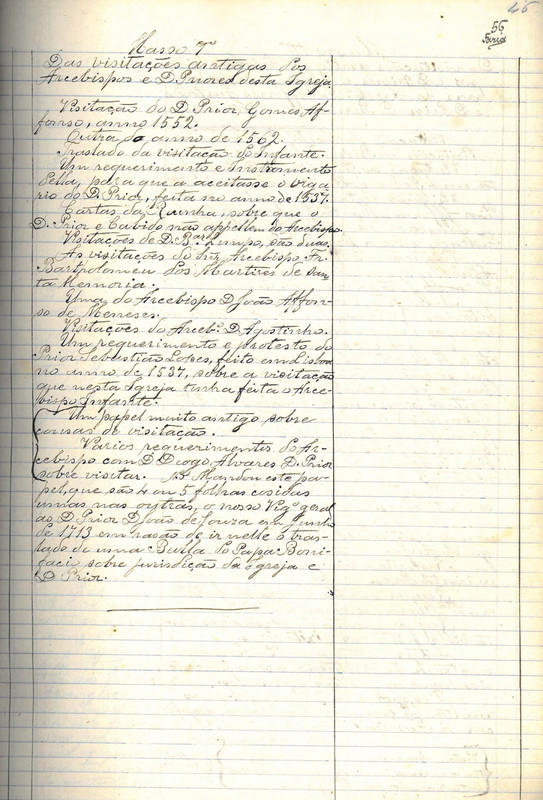 46
56
Faria
Masso 7º
Das visitações antigas dos
Arcebispos e D. Priores desta Igreja.
Visitação do D. Prior, Gomes Af-
fonso, anno 1552.
Outra do anno de 1562.
Traslado da visitação do Infante.
Um requerimento e Instromento
della, para que a aceitasse o viga
rio do D. Prior, feita no anno de 1537.
Cartas da Rainha, sobre que o
D. Prior e Cabido nao appellem do Arcebispo
Visitações de D. Bar Limpo, são duas.
As visitações do Snr. Arcebispo Fr.
Bartholomeu dos Martires de San-
ta Memoria.
Uma, do Arcebispo D. João Affon-
so de Menezes.
Visitações do Arceb.º D. Agostinho.
Um requerimento e protesto do
Prior Sebastião Lopes, feito em Lisboa
no anno de 1537, sobre a visitação
que nesta Igreja tinha feita o Arce-
bispo Infante.
Um papel muito antigo sobre
cousas de visitação.
Varios requerimentos do Ar-
cebispo com D. Diogo Alvares D. Prior
sobre visitar. Mandou este pa-
pel, que são 4 ou 5 folhas cosidas
umas nas outras, o nosso Vigº geral
ao D. Prior D. João de Souza em Junho
de 1713 em rasão de ir nelle o tras-
lado de uma Bulla do Papa Boni-
facio sobre jurisdição da Igreja e
D. Prior.